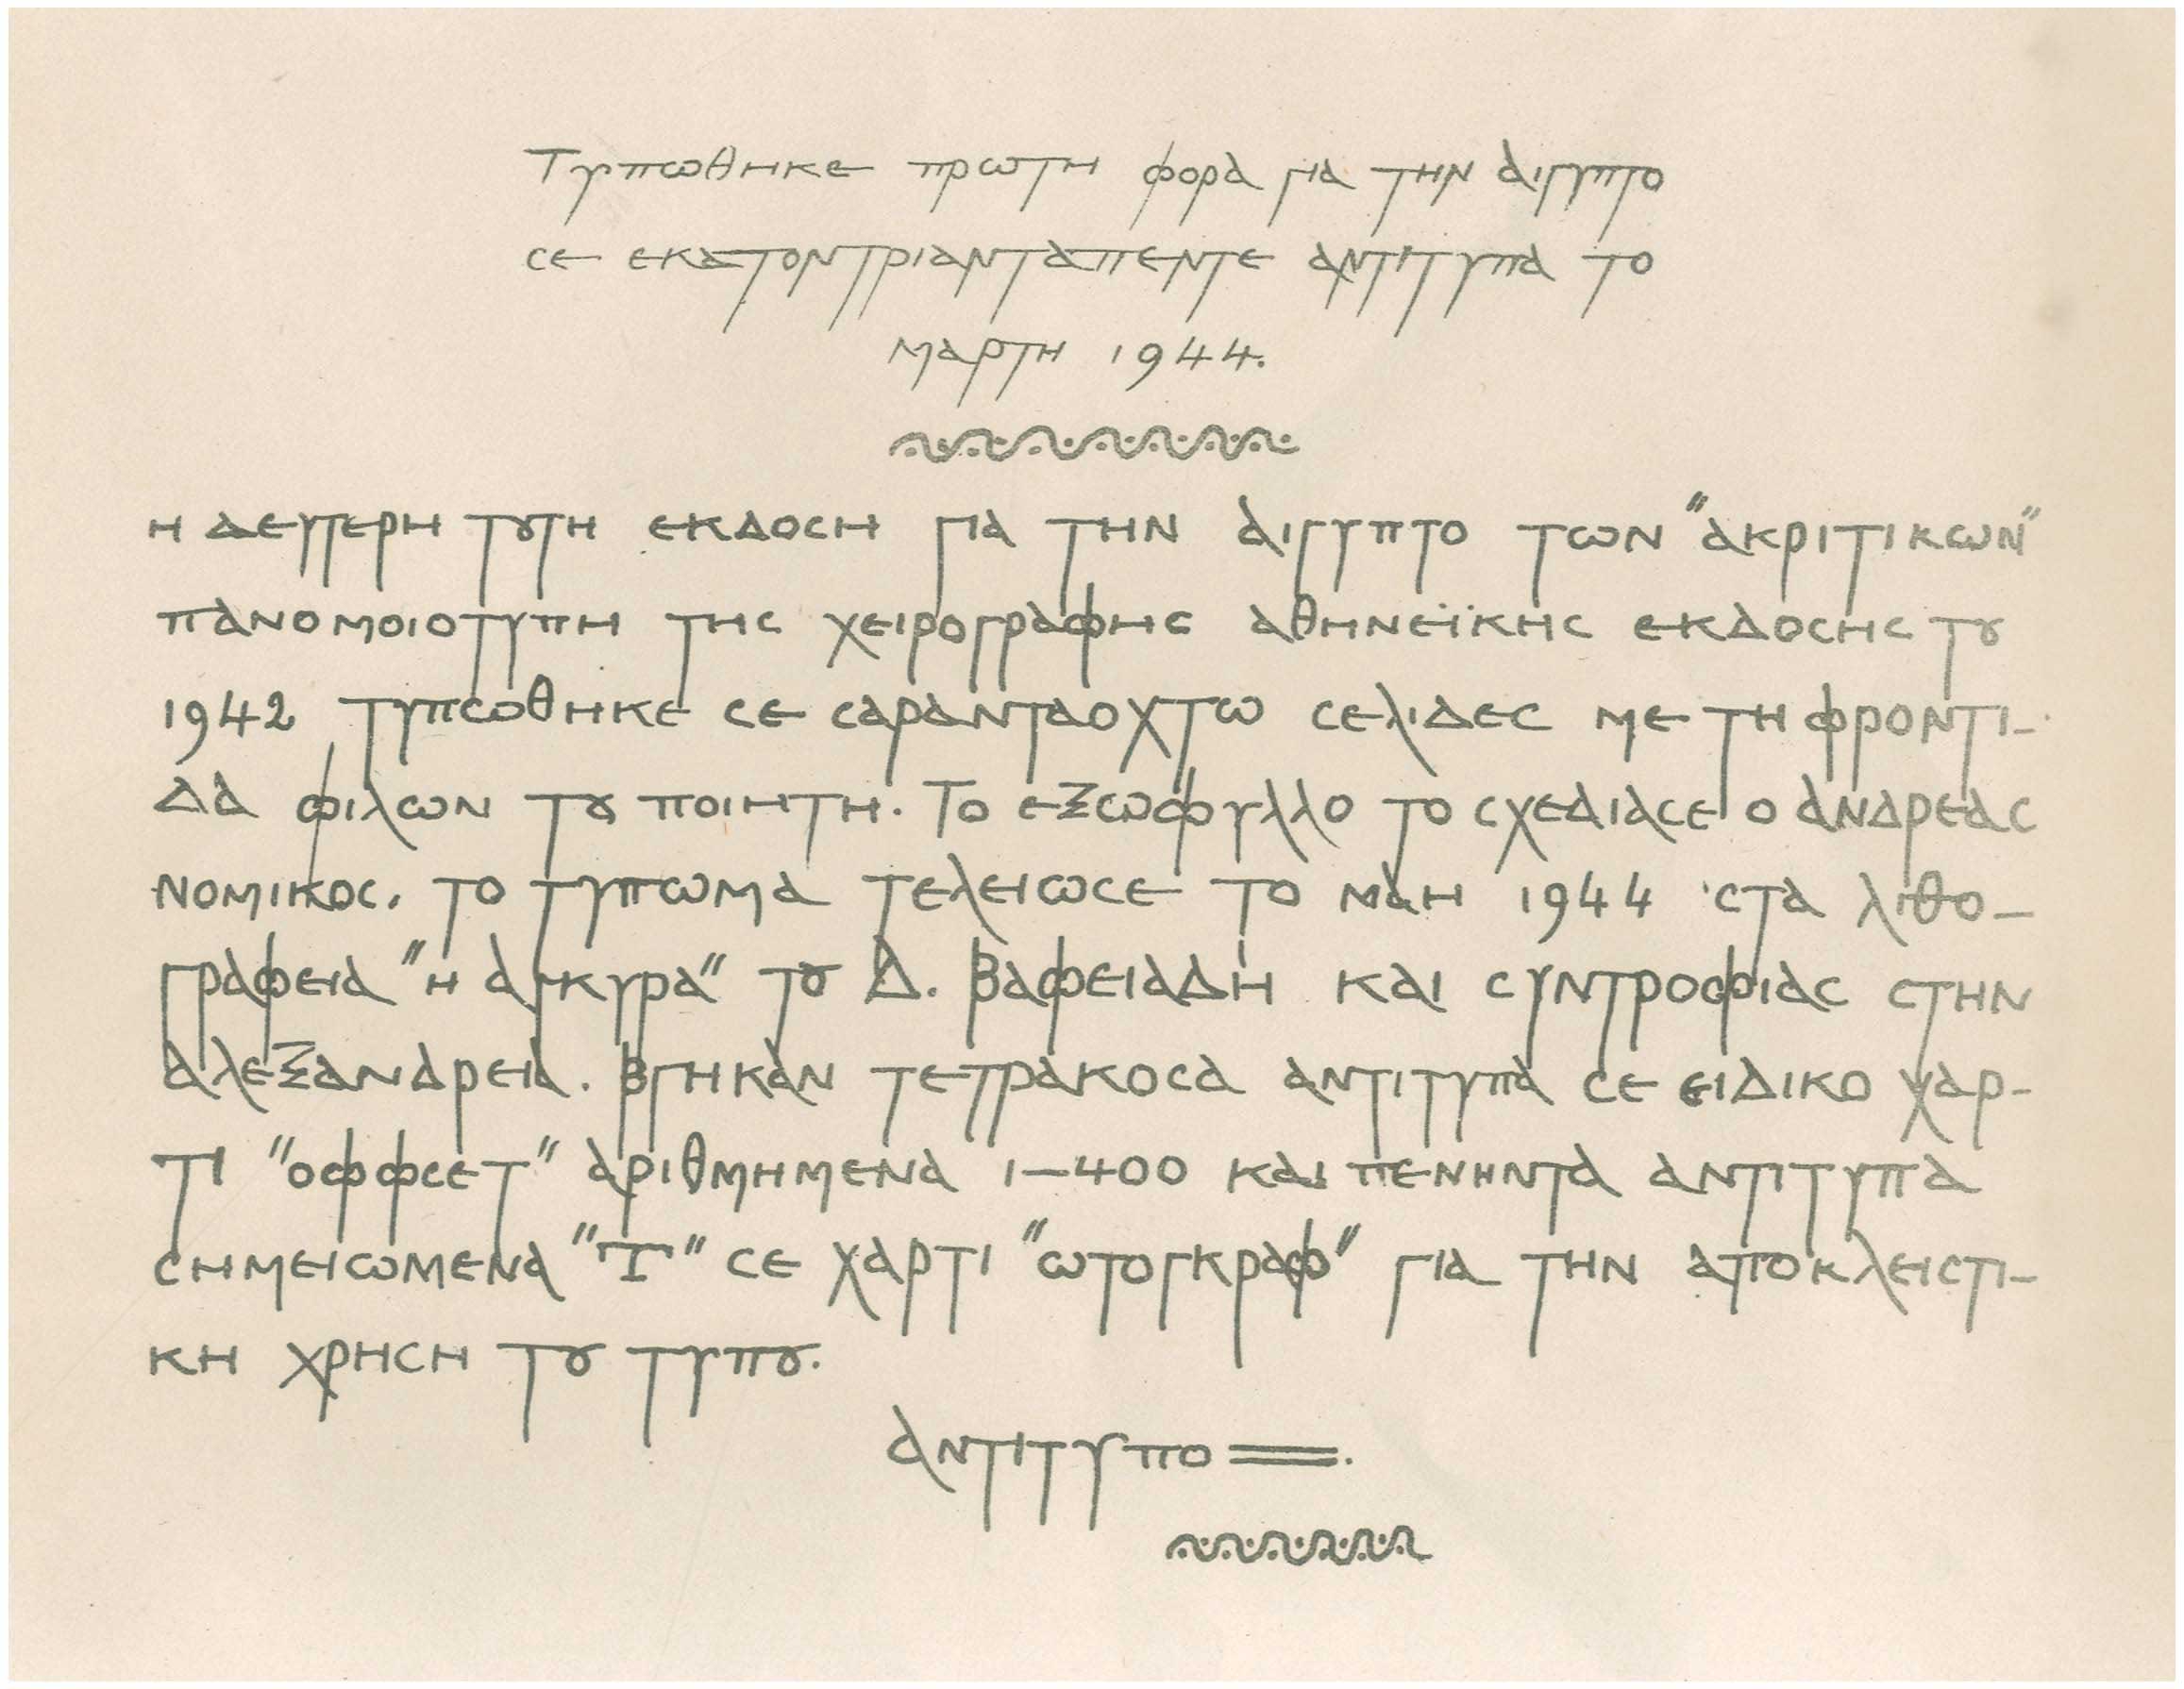 Τυπωθηκε πρωτη φορα για την αιγυπτο
σε εκατοντριανταπεντε αντιτυπα το
μαρτη 1944.
η δευτερη τȣτη εκδοση για την αιγυπτο των "ακριτικων"
πανομοιοτυπη της χειρογραφης αθηνεϊκης εκδοσης τȣ
1942 τυπωθηκε σε σαρανταοχτω σελιδες με τη φροντι-
δα φιλων τȣ ποιητη. Το εξωφυλλο το σχεδιασε ο ανδρεας
νομικος. το τυπωμα τελειωσε το μαη 1944 'στα λιθο-
γραφεια "η αγκυρα" τȣ Δ. βαφειαδη και συντροφιας στην
αλεξανδρεια. βγηκαν τετρακοσα αντιτυπα σε ειδικο χαρ-
τι "οφφσετ" αριθμημενα 1-400 και πενηντα αντιτυπα
σημειωμενα "Τ" σε χαρτι "ωτογκραφ" για την αποκλειστι-
κη χρηση τȣ τυπȣ.
αντιτυπο ═.